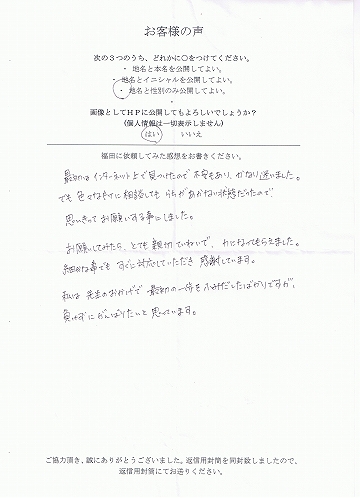 お客様の声
次の3つのうち、どれかに○をつけてください。
・ 地名と本名を公開してよい。
・ 地名とイニシャルを公開してよい。
・ 地名と性別のみ公開してよい。
画像としてＨＰに公開してもよろしいでしょうか？
(個人情報は一切表示しません)
はい いいえ
福田に依頼してみた感想をお書きください。
最初はインターネット上で見つけたので不安もあり、かなり迷いました。
でも色々な所に相談しても らちがあかない状態だったので
思いきってお願いする事にしました。
お願いしてみたら、とても親切ていねいで、力になってもらえました。
細かな事でも すぐに対応していただき 感謝しています。
私は 先生のおかげで 最初の一歩を ふみだしたばかりですが、
負けずにがんばりたいと思っています。
ご協力頂き、誠にありがとうございました。返信用封筒を同封致しましたので、
返信用封筒にてお送りください。